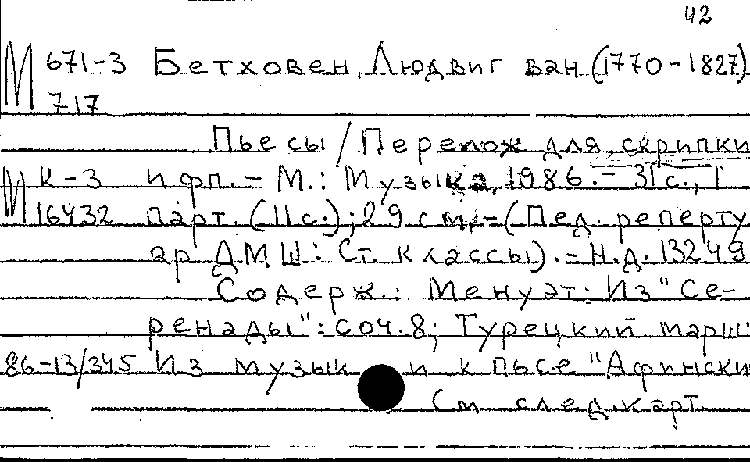 42
М 671-3 Бетховен, Людвиг ван (1770-1827)
717
Пьесы / Перелож для скрипки
М К-3 и фп. - М.: Музыка, 1986. - 31 с., 1
16432 парт. (11 с.); 29 см. - (Пед. реперту
ар ДМШ: Ст. классы). - Н.д. 13249
Содерж.: Менуэт: Из "Се-
ренады": соч. 8; Турецкий марш:
86-13/345 Из музык и к пьесе "Афински
См след.карт